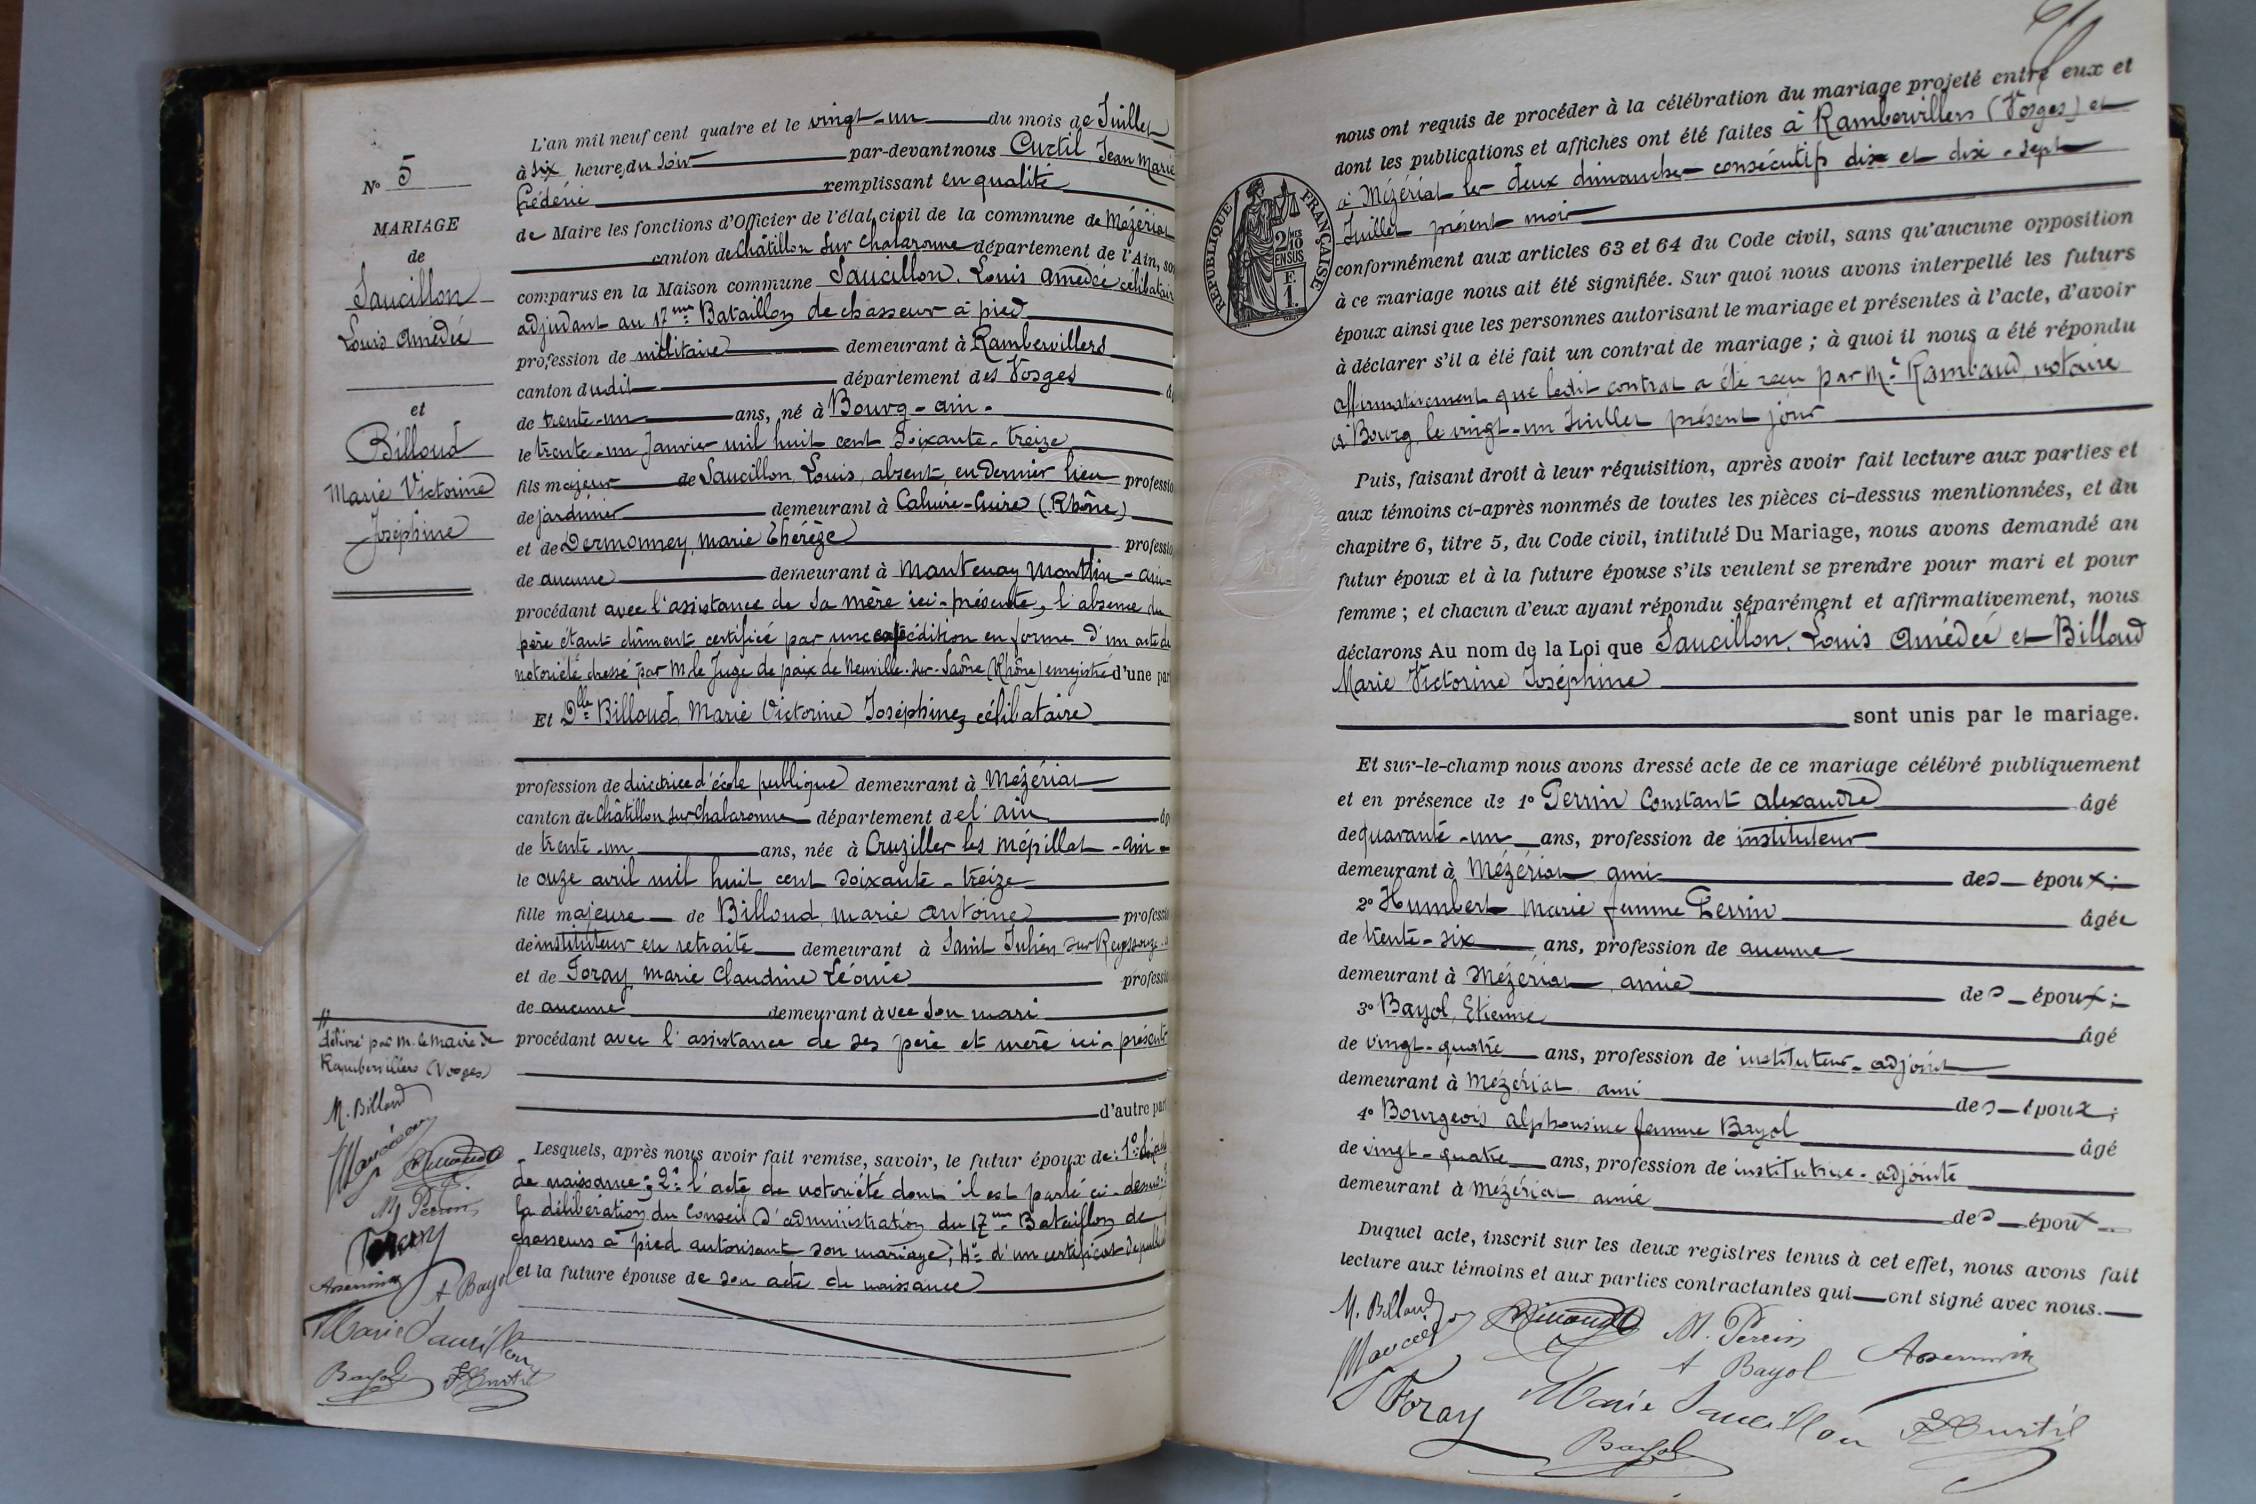 N° 5
MARIAGE
de
Saucillon
Louis Amédée
et
Billoud
Marie Victorine
Joséphine
L'an mil neuf cent quatre et le vingt-un du mois de Juillet
à six heure du soir par-devant nous Curtil Jean Marie
Frédéric remplissant en qualité
de Maire les fonctions d'Officier de l'état civil de la commune de Mézériat
canton de Châtillon sur Chalaronne département de l'Ain, son
comparus en la Maison commune Saucillon, Louis Amédée célibataire
adjudant au 17me Bataillon de chasseur à pied
profession de militaire demeurant à Rambervillers
canton dudit département des Vosges
de trente-un ans, né à Bourg - ain -
le trente-un Janvier mil huit cent soixante-treize
fils majeur de Saucillon, Louis, absent, en dernier lieu professio
de jardinier demeurant à Caluire-Cuire (Rhône)
et de Dermonney, marie Thérèze professio
de aucune demeurant à Mantenay Montlin - ain -
procédant avec l'assistance de sa mère ici-présente, l'absence du
père étant dûment certifiée par une expédition en forme d'un acte de
notoriété dressé par M. le Juge de paix de Neuville-sur-Saône (Rhône) enregistré d'une par
Et Dlle Billoud, Marie Victorine Joséphine, célibataire
profession de directrice d'école publique demeurant à Mézériat
canton de Châtillon sur Chalaronne département de l'ain
de trente-un ans, née à Cruzilles les mépillat - ain -
le onze avril mil huit cent soixante-treize
fille majeure de Billoud, marie antoine professio
de instituteur en retraite demeurant à Saint Julien sur Reyssouze
et de Foray marie Claudine Léonie professio
de aucune demeurant avec son mari
procédant avec l'assistance de ses père et mère ici-présents
d'autre part
Lesquels, après nous avoir fait remise, savoir, le futur époux de: 1°
de naissance; 2° l'acte de notoriété dont il est parlé ci-dessus;
la délibération du Conseil d'administration du 17me Bataillon de
chasseurs à pied autorisant son mariage; 4° d'un certificat de
et la future épouse de son acte de naissance
délivré par M. le maire de
Rambervillers (Vosges)
M. Billoud
M. Perrin
Foray
A Bayol
Marie Saucillon
Bayol
F Curtil
nous ont requis de procéder à la célébration du mariage projeté entre eux et
dont les publications et affiches ont été faites à Rambervillers (Vosges) et
à Mézériat les deux dimanches consécutifs dix et dix-sept
Juillet présent mois
RÉPUBLIQUE FRANÇAISE
2/10 MES
EN SUS
F.
1.
conformément aux articles 63 et 64 du Code civil, sans qu'aucune opposition
à ce mariage nous ait été signifiée. Sur quoi nous avons interpellé les futurs
époux ainsi que les personnes autorisant le mariage et présentes à l'acte, d'avoir
à déclarer s'il a été fait un contrat de mariage; à quoi il nous a été répondu
affirmativement que ledit contrat a été reçu par Me Rambaud, notaire
à Bourg, le vingt-un Juillet présent jour
Puis, faisant droit à leur réquisition, après avoir fait lecture aux parties et
aux témoins ci-après nommés de toutes les pièces ci-dessus mentionnées, et du
chapitre 6, titre 5, du Code civil, intitulé Du Mariage, nous avons demandé au
futur époux et à la future épouse s'ils veulent se prendre pour mari et pour
femme; et chacun d'eux ayant répondu séparément et affirmativement, nous
déclarons Au nom de la Loi que Saucillon, Louis Amédée et Billoud
Marie Victorine Joséphine
sont unis par le mariage.
Et sur-le-champ nous avons dressé acte de ce mariage célébré publiquement
et en présence de 1° Perrin Constant alexandre âgé
de quarante-un ans, profession de instituteur
demeurant à Mézériat ami des époux;
2° Humbert Marie femme Perrin âgée
de trente-six ans, profession de aucune
demeurant à Mézériat, amie des époux;
3° Bayol, Etienne âgé
de vingt-quatre ans, profession de instituteur-adjoint
demeurant à Mézériat ami des époux;
4° Bourgeois alphonsine femme Bayol âgé
de vingt-quatre ans, profession de institutrice-adjointe
demeurant à Mézériat amie des époux
Duquel acte, inscrit sur les deux registres tenus à cet effet, nous avons fait
lecture aux témoins et aux parties contractantes qui ont signé avec nous.
M. Billoud
M. Perrin
A Bayol
Foray
Marie Saucillon
Bayol
F Curtil